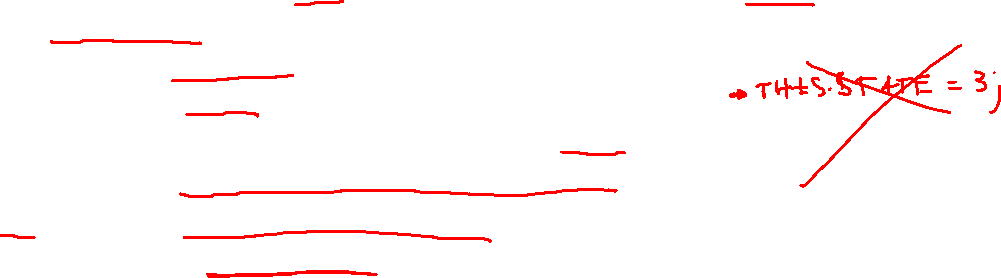 → THIS.STATE = 3;